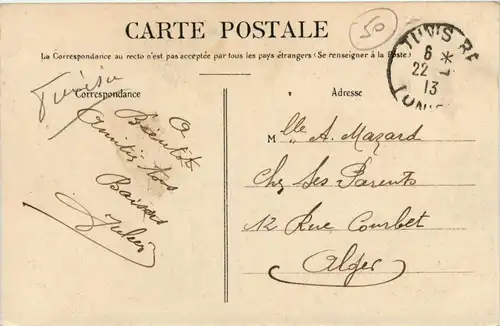 CARTE POSTALE
50
La Correspondance au recto n'est pas acceptée par tous les pays étrangers (Se renseigner à la Poste)
TUNIS
6 *
22 - 7
13
TUNIS
Tunisie
Correspondance
Adresse
A
Bientôt
Amitiés tous
Baisers
Mlle A. Mazard
Chez Ses Parents
12 Rue Courbet
Alger